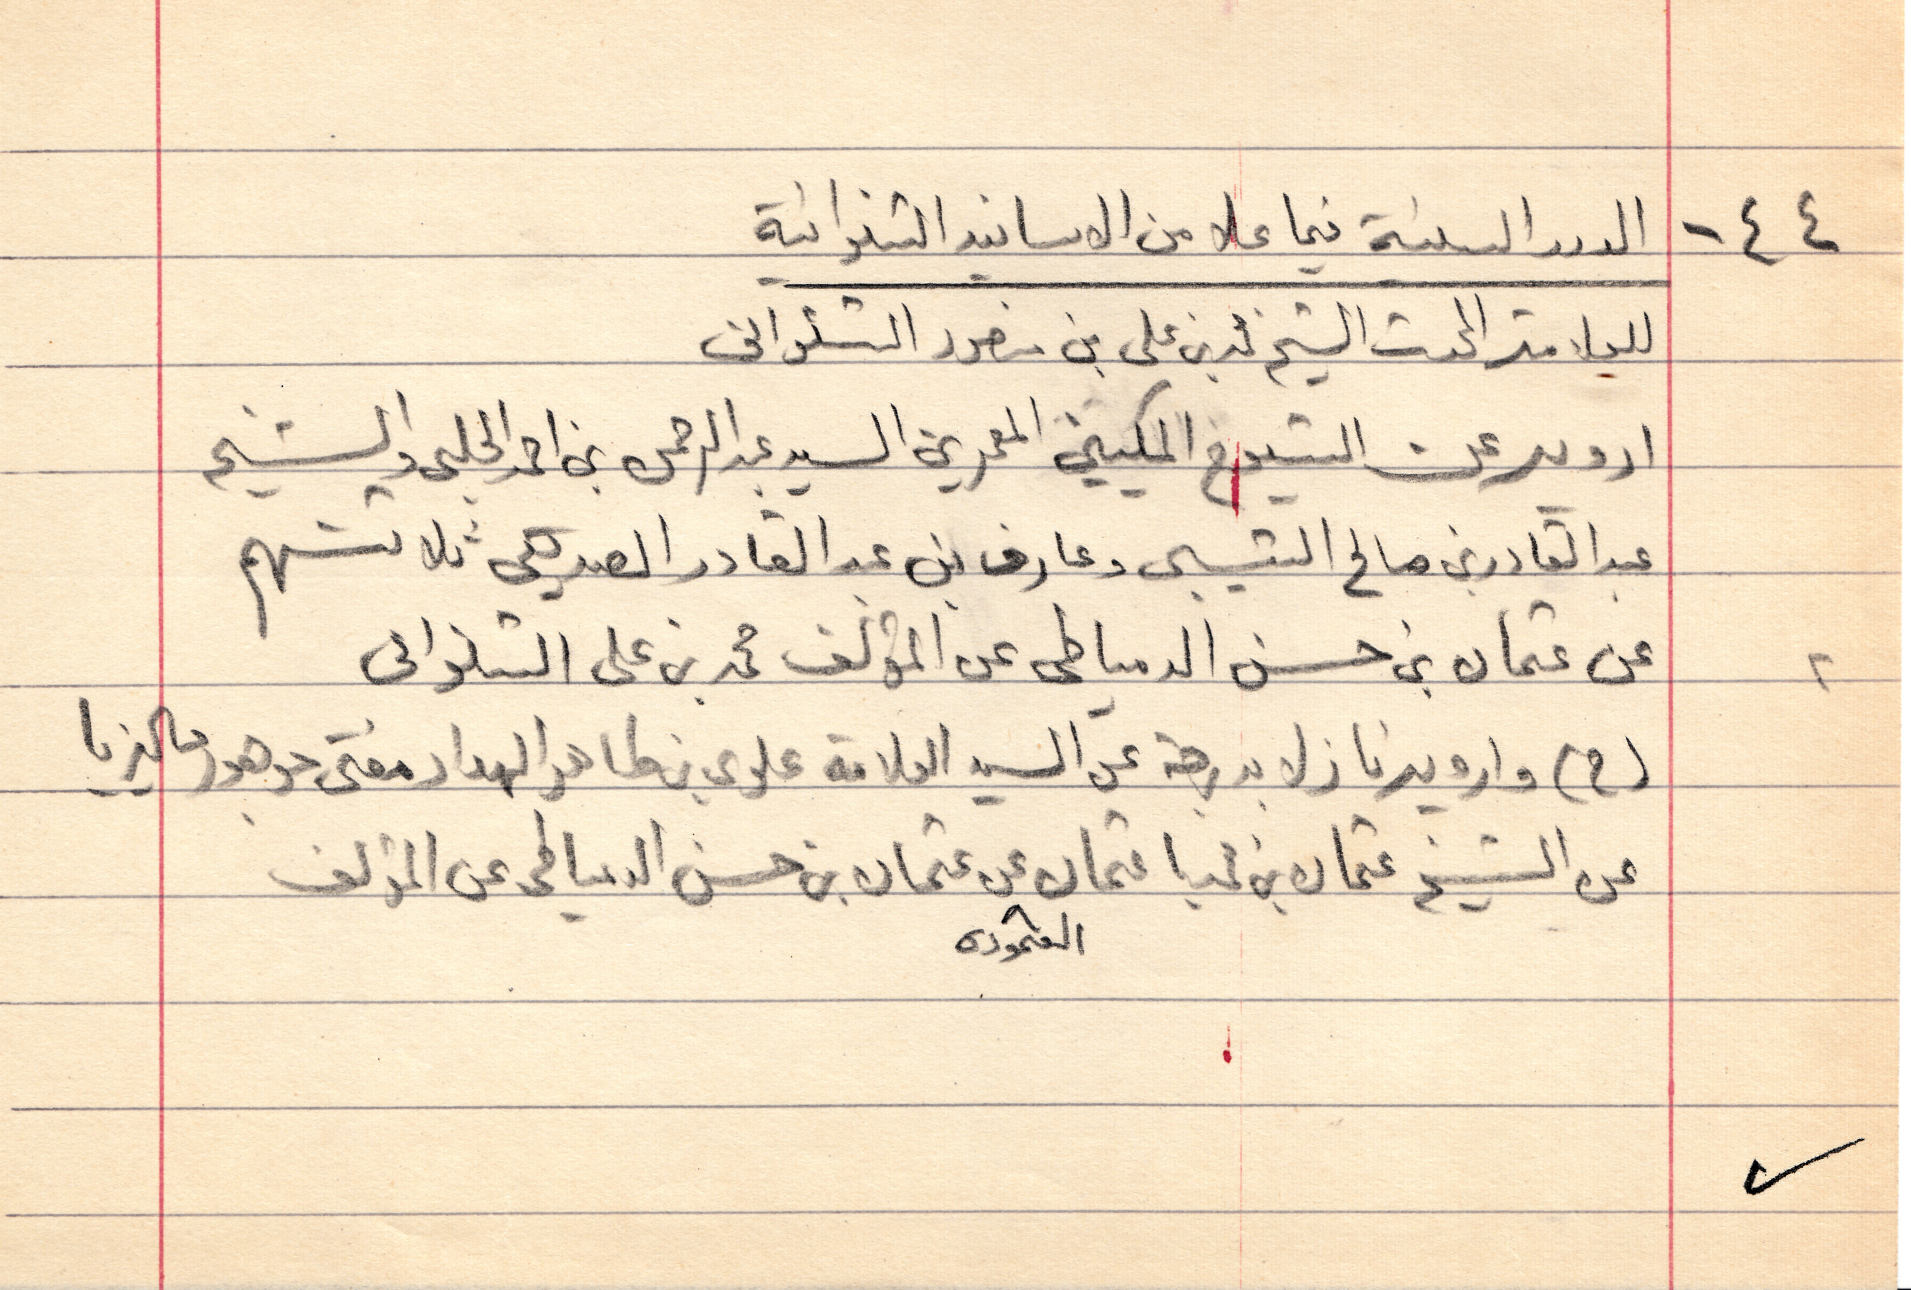 ٤٤ - الدرر السنية فيما علا من الاسانيد الشنوانية
للعلامة المحدث الشيخ محمد بن على بن منصور الشنوانى
ارويه عن الشيوخ المكيين المعمرين السيد عبد الرحمن بن احمد الحلبى والشيخ
عبد القادر بن صالح الشيبى وعارف بن عبد القادر الصديقى ثلاثتهم
عن عثمان بن حسن الدمياطى عن المؤلف محمد بن على الشنوانى
(ح) وارويه نازلا بدرجة عن السيد العلامة علوى بن طاهر الحداد مفتى جوهور ماليزيا
عن الشيخ عثمان بن عثمان عن عثمان بن حسن الدمياطى عن المؤلف